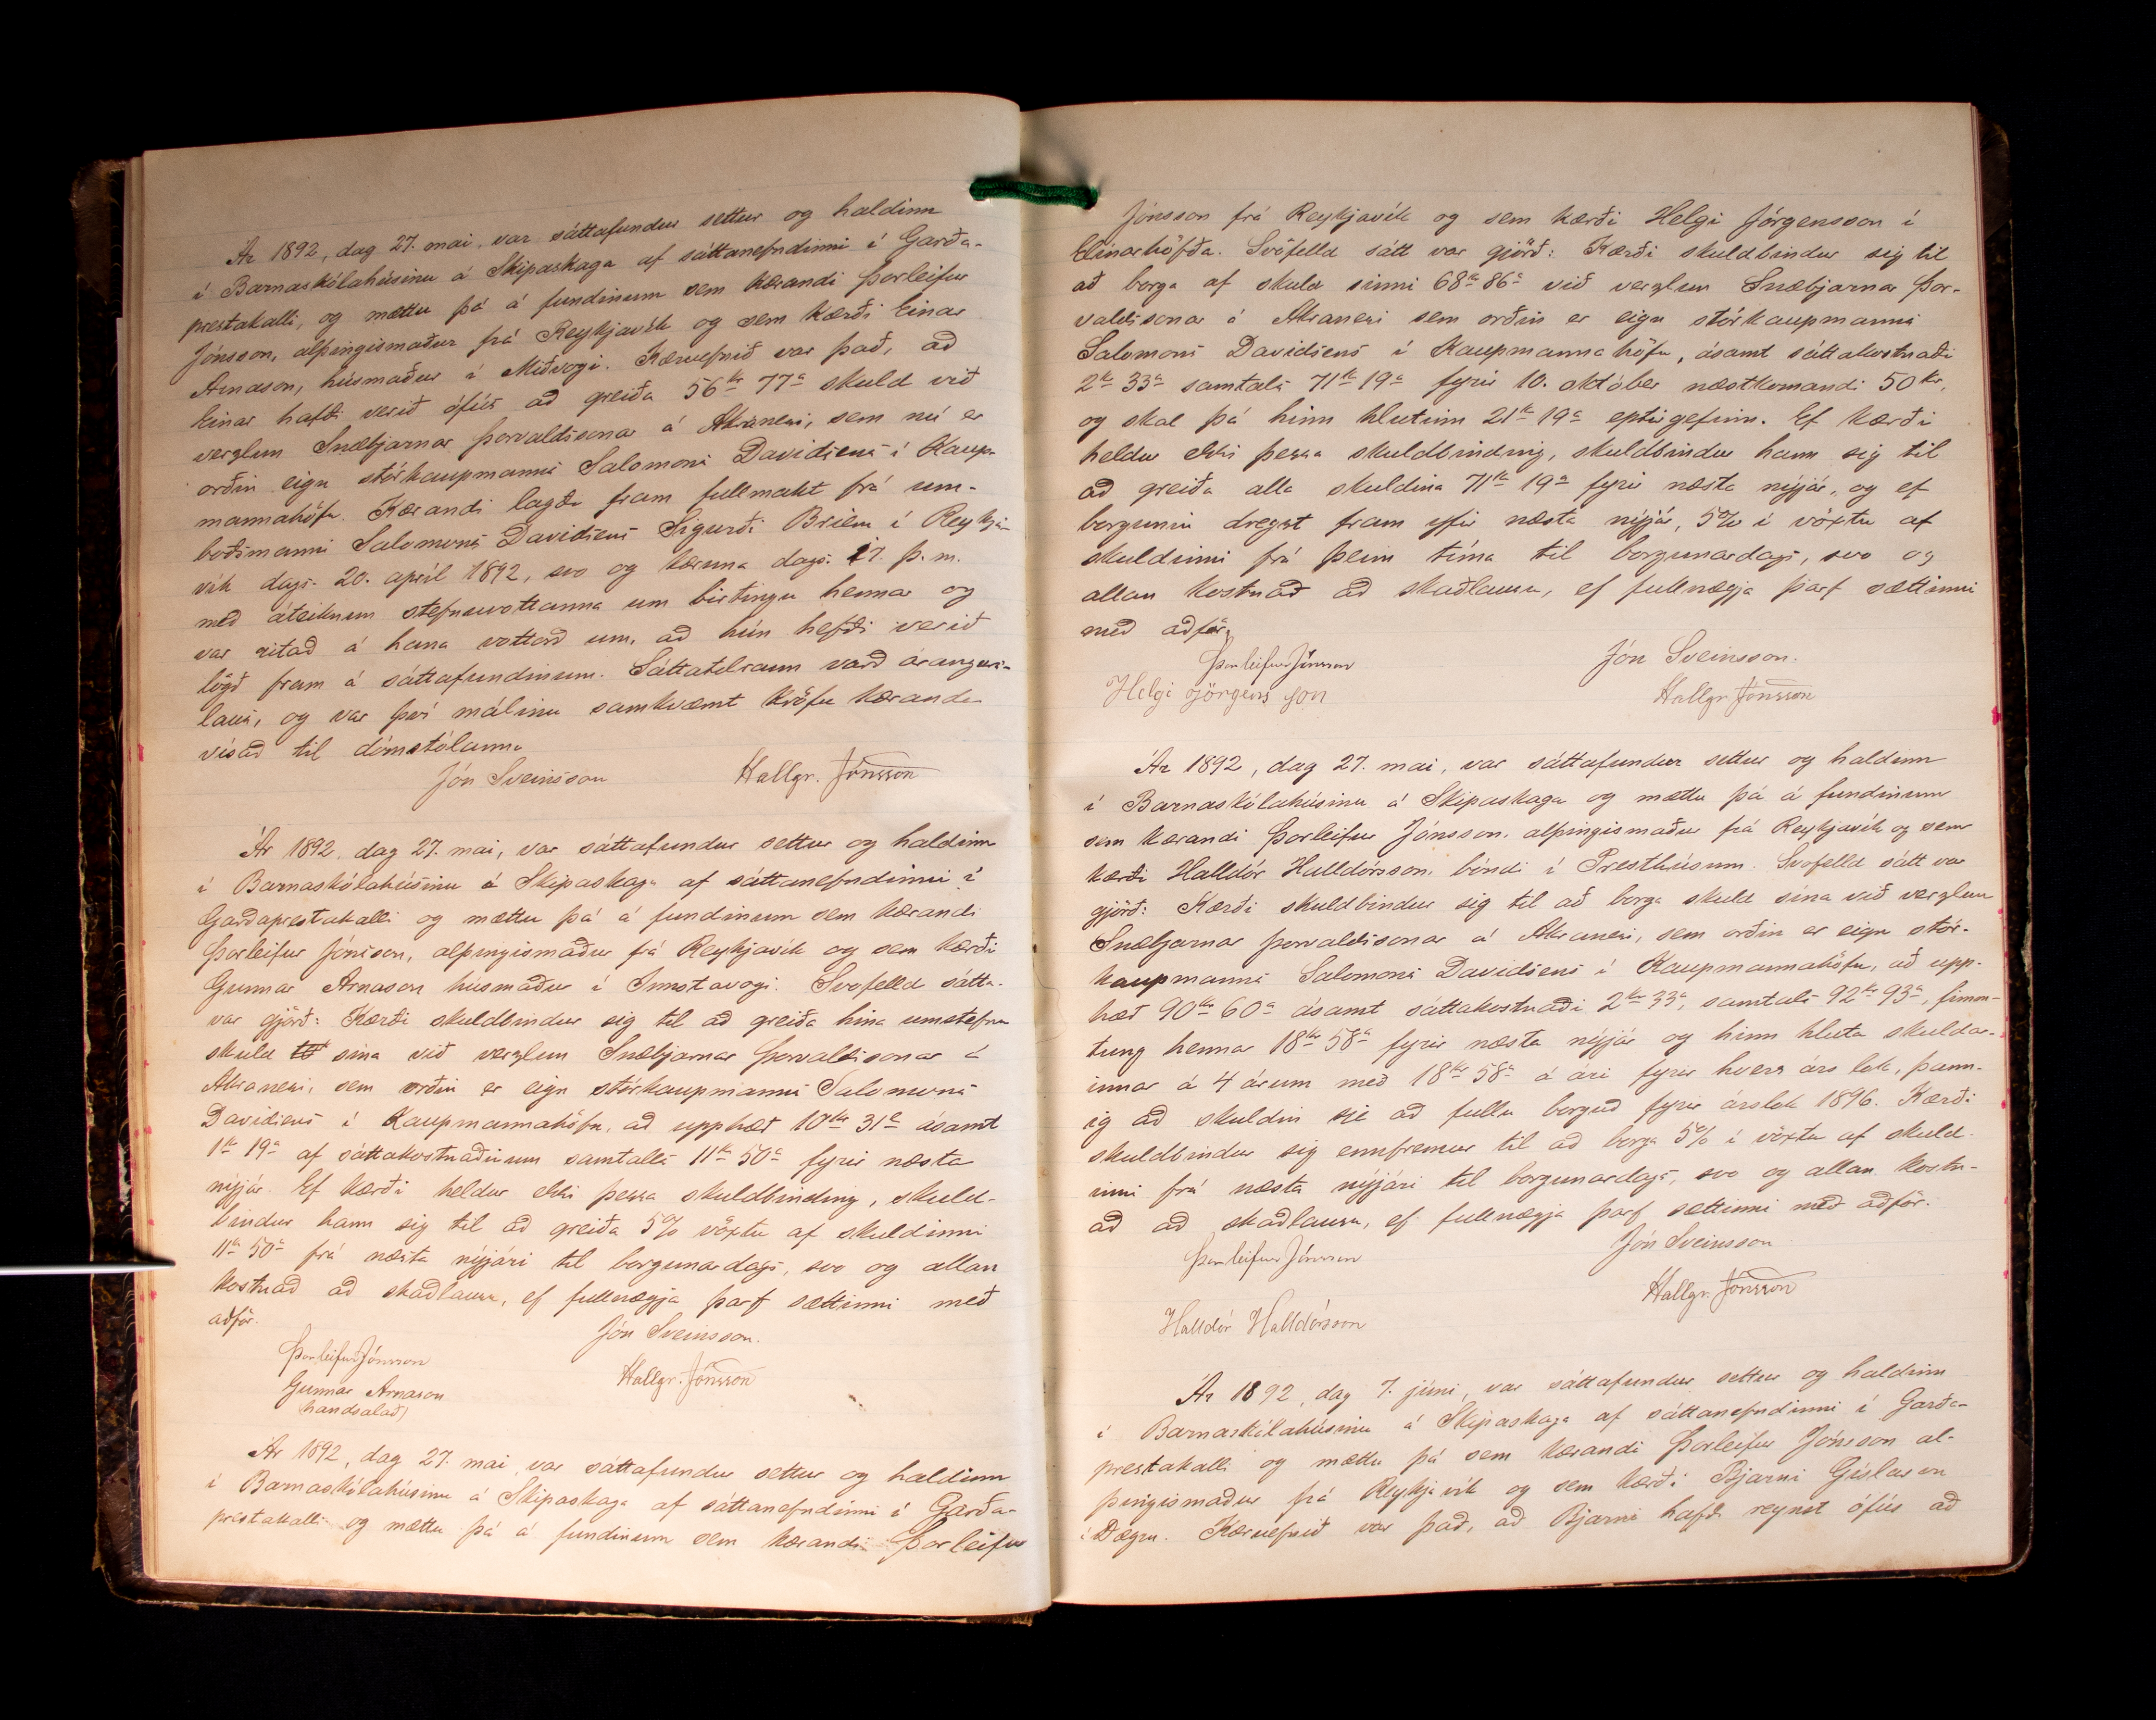 Ár 1892, dag 27. mai, var sáttafundur settur og haldinn
í Barnaskólahúsinu á Skipaskaga af sáttanefndinni í Garða-
prestakalli, og mættu þá á fundinum sem kærandi Þorleifur
Jónsson, alþingismaður frá Reykjavík og sem kærði Einar
Arnason, húsmaður í Miðvogi. Kæruefnið var það, að
Einar hafði verið ófús að greiða 56 kr 77 a skuld við
verzlun Snæbjarnar Þorvaldssonar á Akranesi, sem nú er
orðin eign stórkaupmanns Salomons Davidsens í Kaup-
mannahöfn. Kærandi lagði fram fullmakt frá um-
boðsmanni Salomons Davidsens Sigurði Briem í Reykja-
vík dags. 20. apríl 1892, svo og kæruna dags. 17. þ. m.
með áteiknun stefnuvottanna um birtingu hennar og
var ritað á hana vottorð um, að hún hefði verið
lögð fram á sáttafundinum. Sáttatilraun varð árangurs-
laus, og var því málinu samkvæmt kröfu kæranda
vísað til dómstólanna
Jón Sveinsson Hallgr. Jónsson
Ár 1892, dag 27. mai, var sáttafundur settur og haldinn
í Barnaskólahúsinu á Skipaskaga af sáttanefndinni í
Garðaprestakalli og mættu þá á fundinum sem kærandi
Þorleifur Jónsson, alþingismaður frá Reykjavík og sem kærði
Gunnar Arnason húsmaður í Innstavogi. Svofelld sátt
var gjörð: Kærði skuldbindur sig til að greiða hina umstefndu
skuld sína við verzlun Snæbjarnar Þorvaldssonar á
Akranesi, sem orðin er eign stórkaupmanns Salomons
Davidsens í Kaupmannahöfn, að upphæð 10 kr 31 a ásamt
1 kr 19 a af sáttakostnaðinum samtalls 11 kr 50 a fyrir næsta
nýjár. Ef kærði heldur ekki þessa skuldbinding, skuld-
bindur hann sig til að greiða 5% vöxtu af skuldinni
11 kr 50 a frá næsta nýjári til borgunardags, svo og allan
kostnað að skaðlausu, ef fullnægja þarf sættinni með
aðför.
Jón Sveinsson.
Þorleifur Jónsson
Hallgr. Jónsson
Gunnar Arnason
(handsalað)
Ár 1892, dag 27. mai, var sáttafundur settur og haldinn
í Barnaskólahúsinu á Skipaskaga af sáttanefndinni í Garða-
prestakalli og mættu þá á fundinum sem kærandi Þorleifur
Jónsson frá Reykjavík og sem kærði Helgi Jörgensson í
Elínarhöfða. Svofelld sátt var gjörð: Kærði skuldbindur sig til
að borga af skuld sinni 68 kr 86 a við verzlun Snæbjarnar Þor-
valdssonar á Akranesi sem orðin er eign stórkaupmanns
Salomons Davidsens í Kaupmannahöfn, ásamt sáttakostnaði
2 kr 33 a samtals 71 kr 19 a fyrir 10. október næstkomandi 50 kr,
og skal þá hinn hlutinn 21 kr 19 a eptirgefinn. Ef kærði
heldur ekki þessa skuldbinding, skuldbindur hann sig til
að greiða alla skuldina 71 kr 19 a fyrir næsta nýjár, og ef
borgunin dregst fram yfir næsta nýjár, 5% í vöxtu af
skuldinni frá þeim tíma til borgunardags, svo og
allan kostnað að skaðlausu, ef fullnægja þarf sættinni
með aðför.
Þorleifur Jónsson Jón Sveinsson.
Helgi Jörgens son Hallgr. Jónsson
Ár 1892, dag 27. mai, var sáttafundur settur og haldinn
í Barnaskólahúsinu á Skipaskaga og mættu þá á fundinum
sem kærandi Þorleifur Jónsson, alþingismaður frá Reykjavík og sem
kærði Halldór Halldórsson, bóndi í Presthúsum. Svofelld sátt var
gjörð: Kærði skuldbindur sig til að borga skuld sína við verzlun
Snæbjarnar Þorvaldssonar á Akranesi, sem orðin er eign stór-
kaupmanns Salomons Davidsens í Kaupmannahöfn, að upp-
hæð 90 kr 60 a ásamt sáttakostnaði 2 kr 33 a, samtals 92 kr 93 a, fimm-
tung hennar 18 kr 58 a fyrir næsta nýjár og hinn hluta skuldar-
innar á 4 árum með 18 kr 58 a á ári fyrir hvers árs lok, þann-
ig að skuldin sje að fullu borguð fyrir árslok 1896. Kærði
skuldbindur sig ennfremur til að borga 5% í vöxtu af skuld-
inni frá næsta nýjári til borgunardags, svo og allan kostn-
að að skaðlausu, ef fullnægja þarf sættinni með aðför.
Þorleifur Jónsson Jón Sveinsson
Hallgr. Jónsson
Halldór Halldórsson
Ár 1892, dag 7. júni, var sáttafundur settur og haldinn
í Barnaskólahúsinu á Skipaskaga af sáttanefndinni í Garða-
prestakalli og mættu þá sem kærandi Þorleifur Jónsson al-
þingismaður frá Reykjavík og sem kærði Bjarni Gíslason
í Dægru. Kæruefnið var það, að Bjarni hafði reynst ófús að